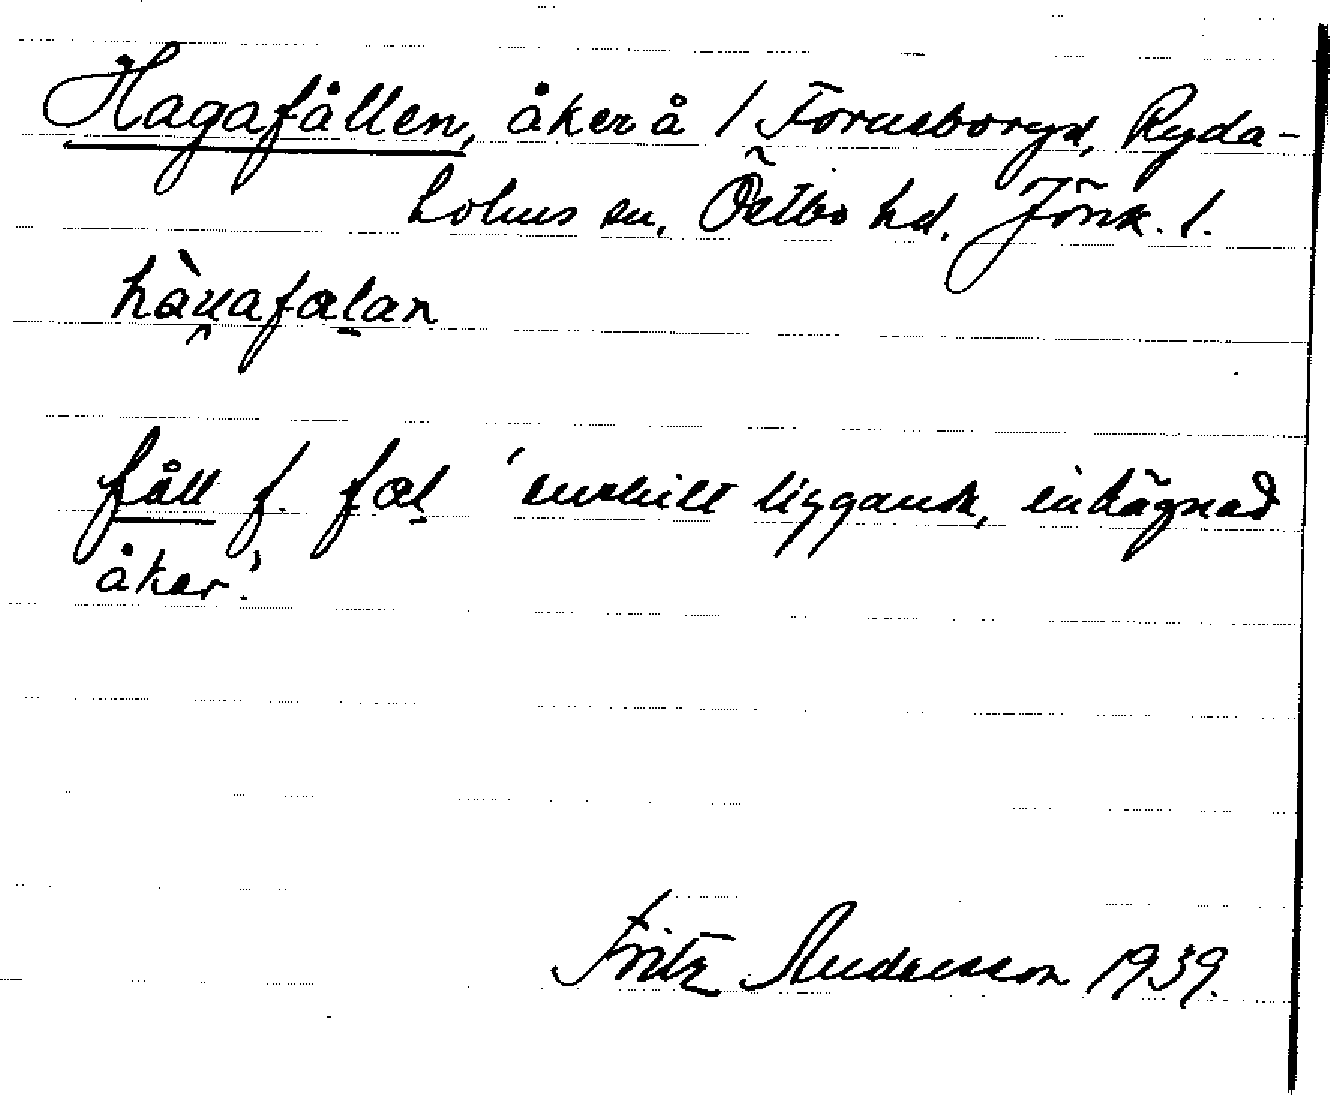 Hagafållen, åker å / Forneboryd, Ryda-
holms sn, Östbo hd. Jönk. l.
hàu̯afalan
fåll f. fal 'enskilt liggande, inhägnad
åker.'
Fritz Andersson 1939.